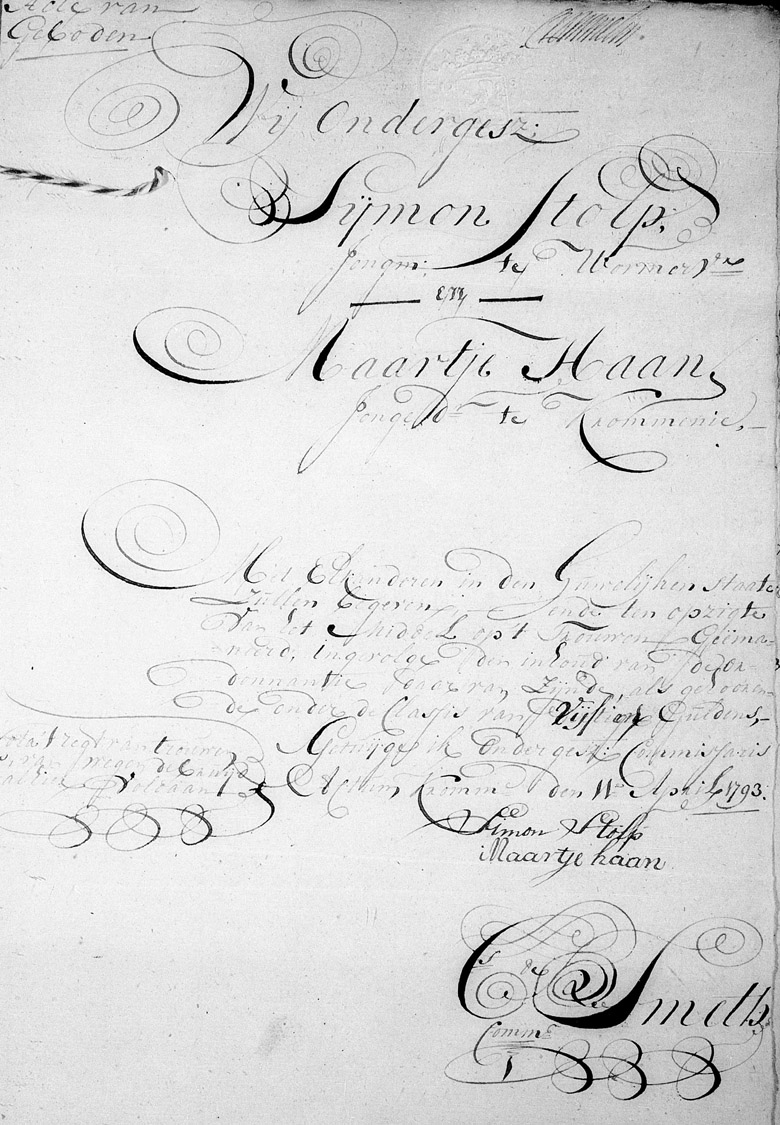 Acte van
Geboden
Wij Ondergesz:
Sijmon Stolp,
Jongm: te Wormerv:r
en
Maartje Haan,
Jonge d:r te Krommenie,
Met Elkanderen in den Huwelijken staate
Zullen Begeven, ende ten opzigte
van het Middel op 't Trouwen Geëma-
neerd, ingevolge den inhoud van de Or-
donnantie daar van zijnde, als gehooren-
de onder de Classis van Vijftien Guldens,
Getuijge ik Ondergesz: Commissaris
Actum Kromme: den 11e April 1793.
Nota 't regt van trouwen
Voldaan
Simon Stolp
Maartje haan
C:s de Smeth
Comm:s